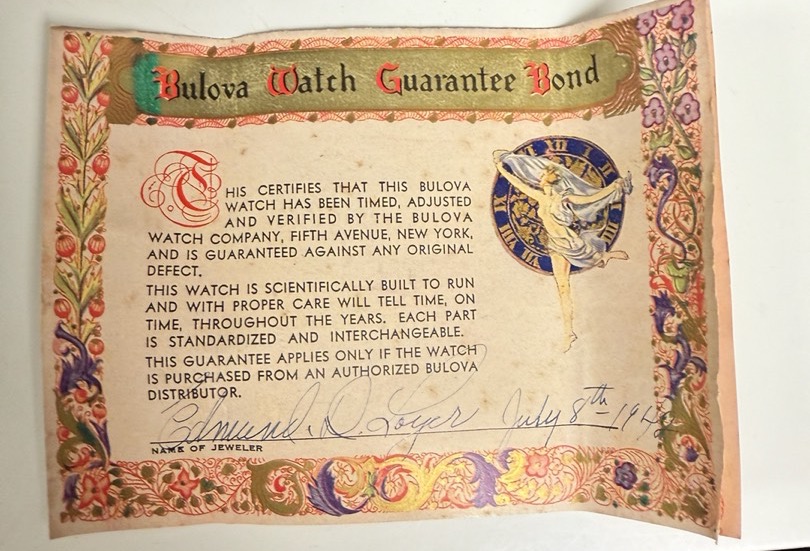 Bulova Watch Guarantee Bond
THIS CERTIFIES THAT THIS BULOVA
WATCH HAS BEEN TIMED, ADJUSTED
AND VERIFIED BY THE BULOVA
WATCH COMPANY, FIFTH AVENUE, NEW YORK,
AND IS GUARANTEED AGAINST ANY ORIGINAL
DEFECT.
THIS WATCH IS SCIENTIFICALLY BUILT TO RUN
AND WITH PROPER CARE WILL TELL TIME, ON
TIME, THROUGHOUT THE YEARS. EACH PART
IS STANDARDIZED AND INTERCHANGEABLE.
THIS GUARANTEE APPLIES ONLY IF THE WATCH
IS PURCHASED FROM AN AUTHORIZED BULOVA
DISTRIBUTOR.
Edmund. D. July 8th
NAME OF JEWELER